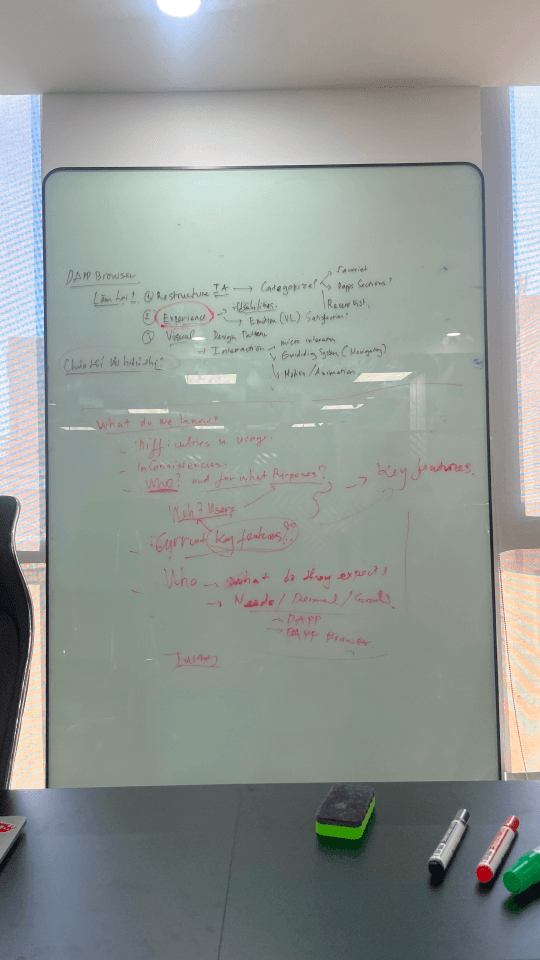 DAPP Browser
Làm lại! ① Restructure IA → Categorized
Favorist
Dapps Sections?
Recent list.
② Experience → Usabilities.
→ Emotion (VL) Satisfaction?
③ Visual Design Pattern
→ Interaction → micro interaction
Guiding System (Navigating)
Motion/Animation
What do we know?
- Difficulties in usage.
- Inconsistencies.
- Who? and for what Purposes? → key features.
Web3 Users
- Current key features?
- Who → What do they expect?
→ Needs/Demand/Goals.
→ DAPP
→ DAPP Browser